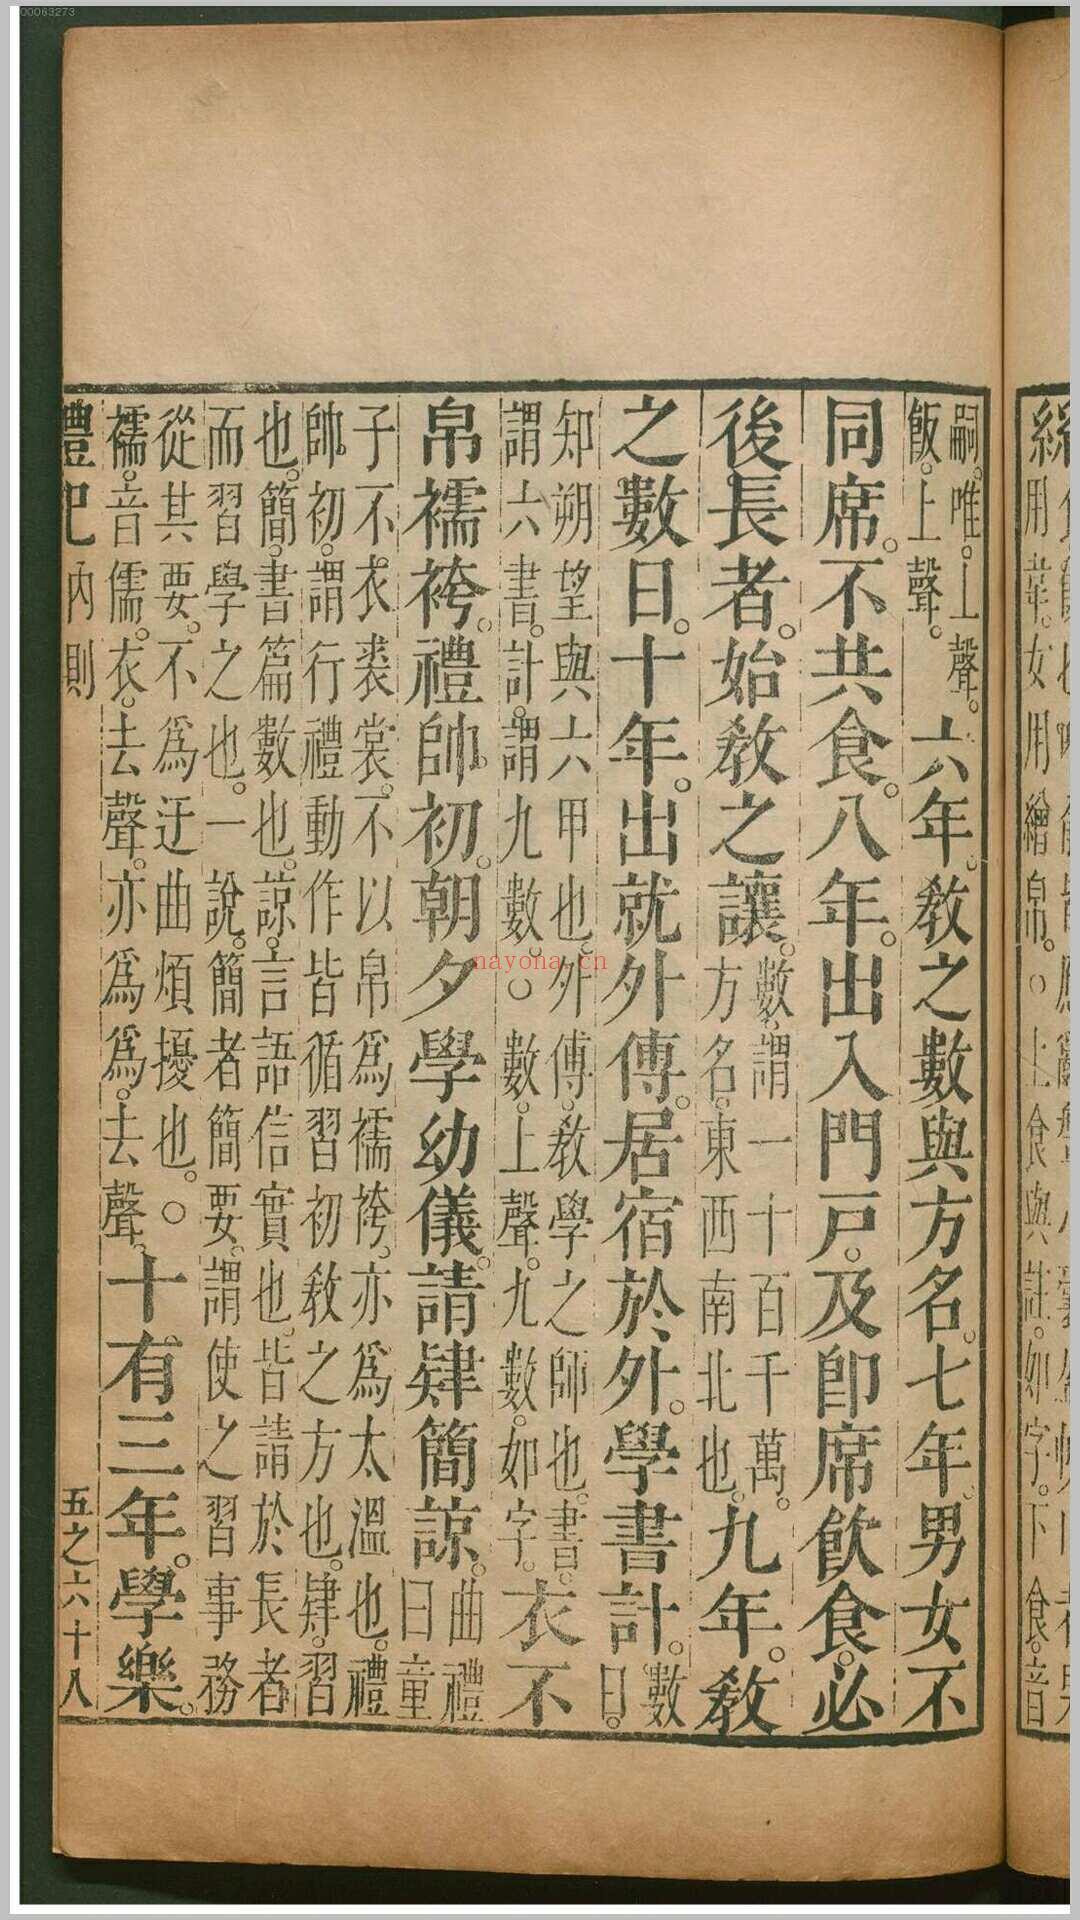 00063273
嗣。唯。上聲。
飯。上聲。
六年。教之數與方名。七年。男女不
同席。不共食。八年。出入門戸。及卽席飲食。必
後長者。始教之讓。
數。謂一十百千萬。
方名。東西南北也。
九年。教
之數日。十年。出就外傅。居宿於外。學書計。
數日。
知朔望與六甲也。外傅。教學之師也。書。
謂六書。計。謂九數。○數。上聲。九數。如字。
衣不
帛襦袴。禮帥初。朝夕學幼儀。請肄簡諒。
曲禮
曰童
子不衣裘裳。不以帛爲襦袴。亦爲太溫也。禮
帥初。謂行禮動作皆循習初教之方也。肄。習
也。簡。書篇數也。諒。言語信實也。皆請於長者
而習學之也。一說。簡者簡要。謂使之習事務
從其要。不爲迂曲煩擾也。○
襦。音儒。衣。去聲。亦爲爲。去聲。
十有三年。學樂。
禮記 內則 五之六十八
nayona.cn